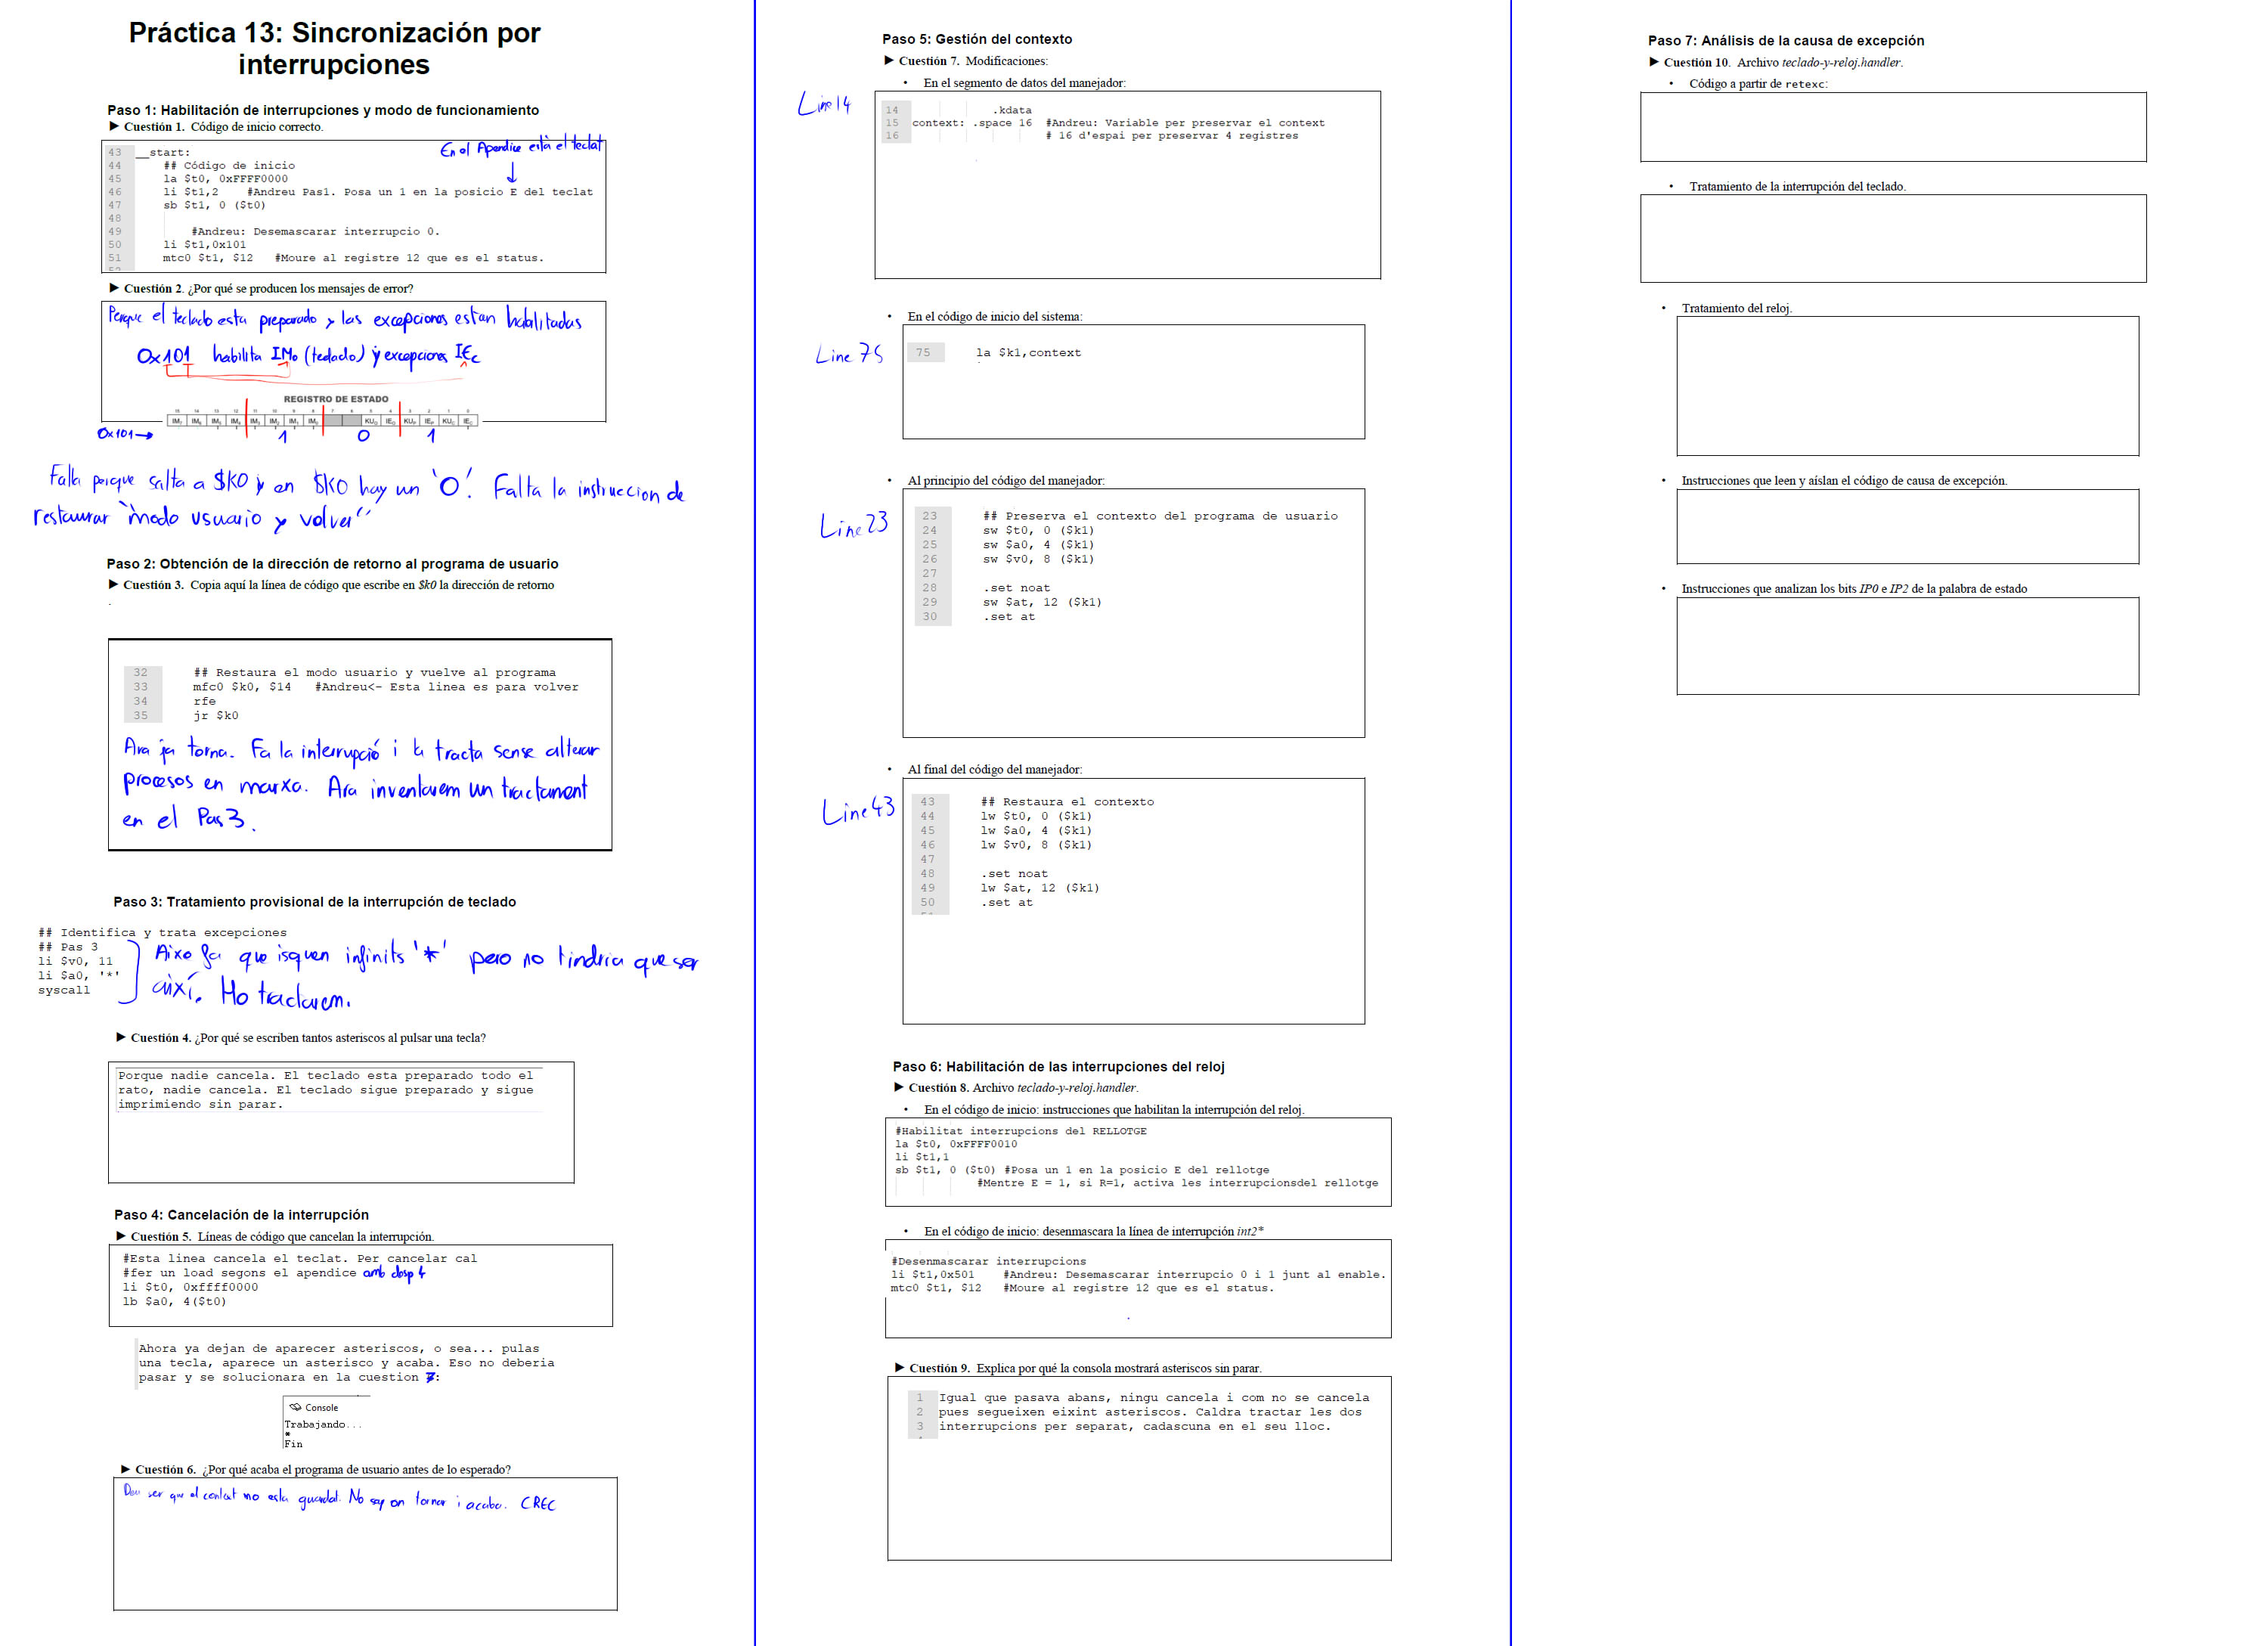 Práctica 13: Sincronización por
interrupciones
Paso 1: Habilitación de interrupciones y modo de funcionamiento
► Cuestión 1. Código de inicio correcto.
En el Apendice està el teclat
43 __start:
44 ## Código de inicio
45 la $t0, 0xFFFF0000
46 li $t1,2 #Andreu Pas1. Posa un 1 en la posicio E del teclat
47 sb $t1, 0 ($t0)
48
49 #Andreu: Desemascarar interrupcio 0.
50 li $t1,0x101
51 mtc0 $t1, $12 #Moure al registre 12 que es el status.
► Cuestión 2. ¿Por qué se producen los mensajes de error?
Porque el teclado esta preparado y las excepciones estan habilitadas
0x101 habilita IM0 (teclado) y excepciones IEc
REGISTRO DE ESTADO
15 14 13 12 11 10 9 8 7 6 5 4 3 2 1 0
0x101 → 1 0 1
Falla porque salta a $k0 y en $k0 hay un '0'. Falta la instruccion de
restaurar "modo usuario y volver"
Paso 2: Obtención de la dirección de retorno al programa de usuario
► Cuestión 3. Copia aquí la línea de código que escribe en $k0 la dirección de retorno
.
32 ## Restaura el modo usuario y vuelve al programa
33 mfc0 $k0, $14 #Andreu<- Esta linea es para volver
34 rfe
35 jr $k0
Ara ja torna. Fa la interrupció i la tracta sense alterar
procesos en marxa. Ara inventarem un tractament
en el Pas 3.
Paso 3: Tratamiento provisional de la interrupción de teclado
## Identifica y trata excepciones
## Pas 3
li $v0, 11
li $a0, '*'
syscall
Aixo fa que isquen infinits '*' pero no tindria que ser
així. Ho tractarem.
► Cuestión 4. ¿Por qué se escriben tantos asteriscos al pulsar una tecla?
Porque nadie cancela. El teclado esta preparado todo el
rato, nadie cancela. El teclado sigue preparado y sigue
imprimiendo sin parar.
Paso 4: Cancelación de la interrupción
► Cuestión 5. Líneas de código que cancelan la interrupción.
#Esta linea cancela el teclat. Per cancelar cal
#fer un load segons el apendice amb desp 4
li $t0, 0xffff0000
lb $a0, 4($t0)
Ahora ya dejan de aparecer asteriscos, o sea... pulas
una tecla, aparece un asterisco y acaba. Eso no deberia
pasar y se solucionara en la cuestion 7:
Console
Trabajando...
*
Fin
► Cuestión 6. ¿Por qué acaba el programa de usuario antes de lo esperado?
Deu ser que el context no esta guardat. No sap on tornar i acaba. CREC
Paso 5: Gestión del contexto
► Cuestión 7. Modificaciones:
• En el segmento de datos del manejador:
Line 14
14 .kdata
15 context: .space 16 #Andreu: Variable per preservar el context
16 # 16 d'espai per preservar 4 registres
• En el código de inicio del sistema:
Line 75
75 la $k1,context
• Al principio del código del manejador:
Line 23
23 ## Preserva el contexto del programa de usuario
24 sw $t0, 0 ($k1)
25 sw $a0, 4 ($k1)
26 sw $v0, 8 ($k1)
27
28 .set noat
29 sw $at, 12 ($k1)
30 .set at
• Al final del código del manejador:
Line 43
43 ## Restaura el contexto
44 lw $t0, 0 ($k1)
45 lw $a0, 4 ($k1)
46 lw $v0, 8 ($k1)
47
48 .set noat
49 lw $at, 12 ($k1)
50 .set at
Paso 6: Habilitación de las interrupciones del reloj
► Cuestión 8. Archivo teclado-y-reloj.handler.
• En el código de inicio: instrucciones que habilitan la interrupción del reloj.
#Habilitat interrupcions del RELLOTGE
la $t0, 0xFFFF0010
li $t1,1
sb $t1, 0 ($t0) #Posa un 1 en la posicio E del rellotge
#Mentre E = 1, si R=1, activa les interrupcionsdel rellotge
• En el código de inicio: desenmascara la línea de interrupción int2*
#Desenmascarar interrupcions
li $t1,0x501 #Andreu: Desemascarar interrupcio 0 i 1 junt al enable.
mtc0 $t1, $12 #Moure al registre 12 que es el status.
► Cuestión 9. Explica por qué la consola mostrará asteriscos sin parar.
1 Igual que pasava abans, ningu cancela i com no se cancela
2 pues segueixen eixint asteriscos. Caldra tractar les dos
3 interrupcions per separat, cadascuna en el seu lloc.
Paso 7: Análisis de la causa de excepción
► Cuestión 10. Archivo teclado-y-reloj.handler.
• Código a partir de retexc:
• Tratamiento de la interrupción del teclado.
• Tratamiento del reloj.
• Instrucciones que leen y aíslan el código de causa de excepción.
• Instrucciones que analizan los bits IP0 e IP2 de la palabra de estado